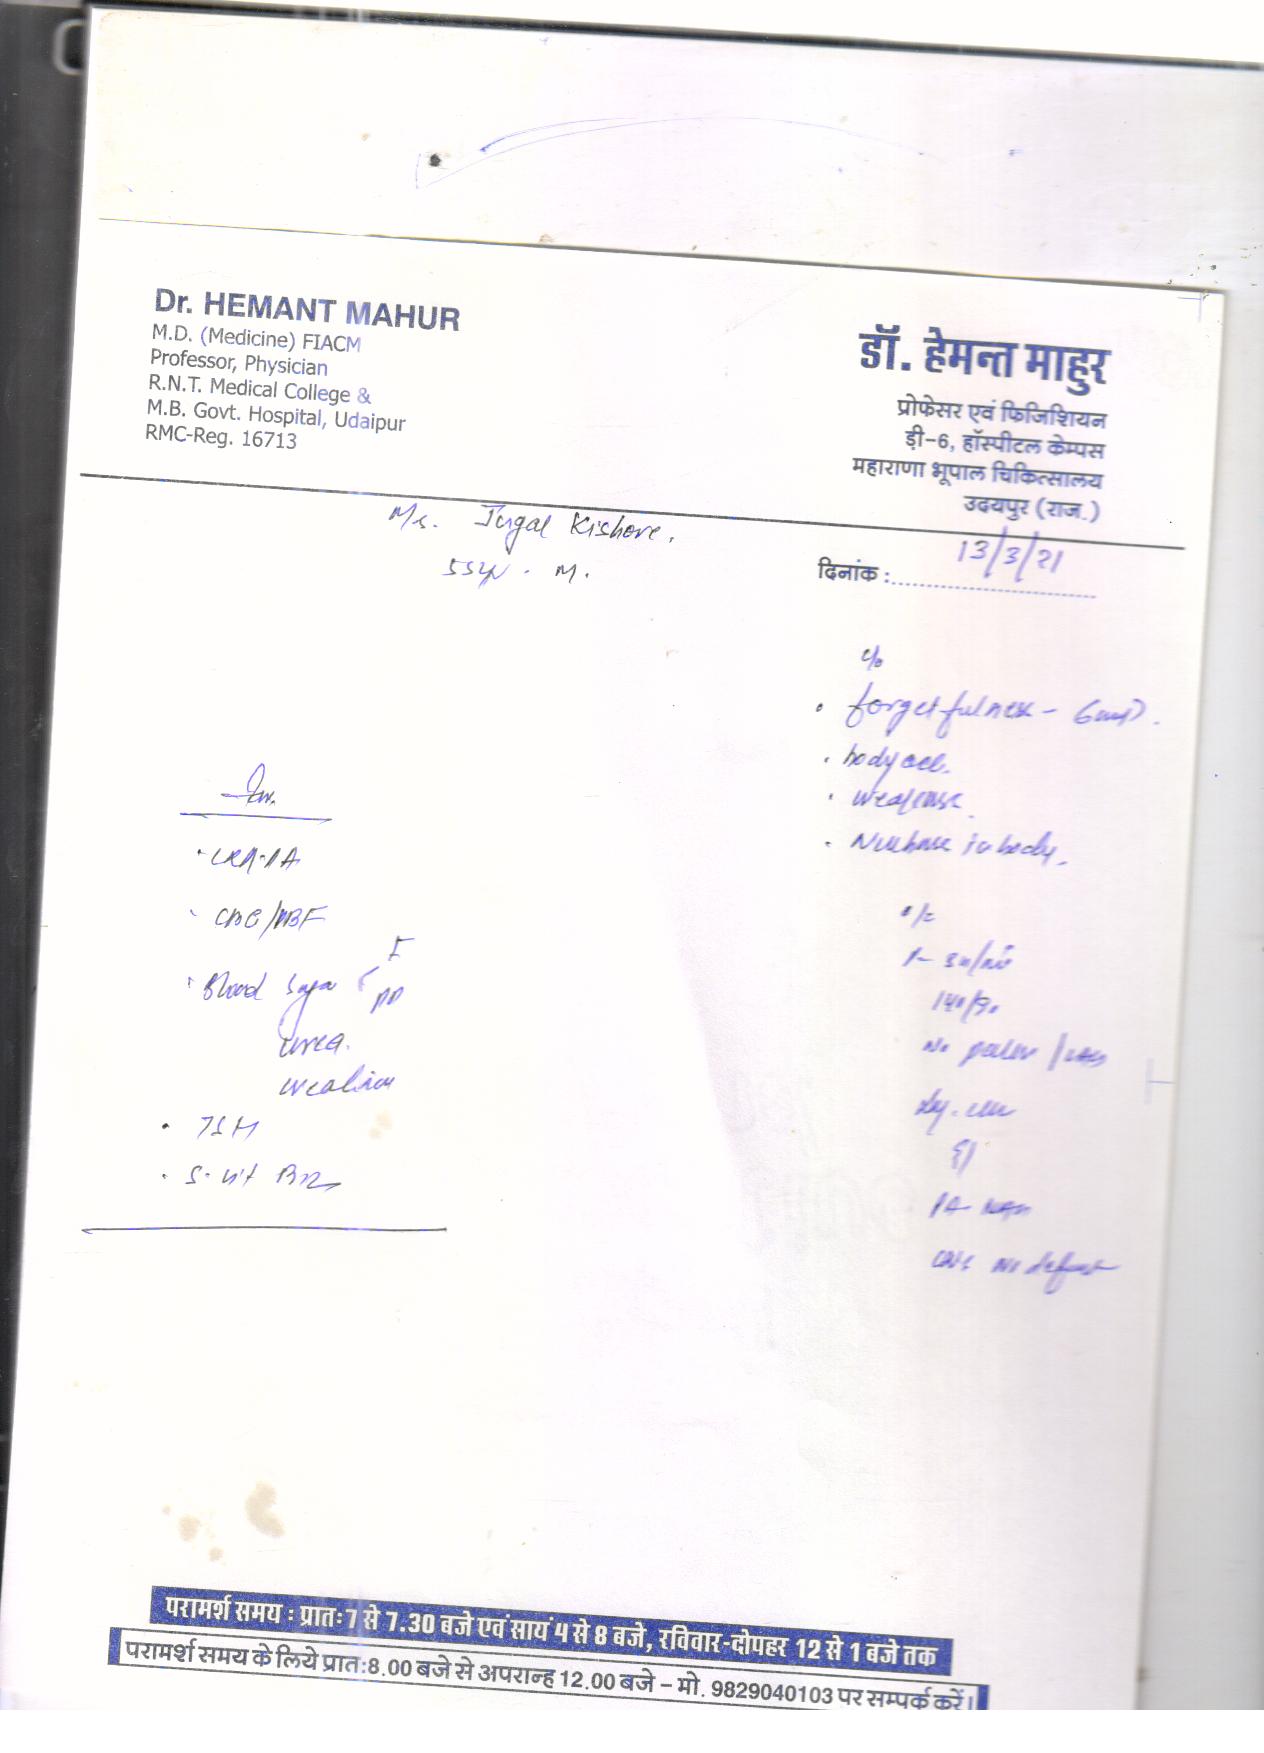 Dr. HEMANT MAHUR
M.D. (Medicine) FIACM
Professor, Physician
R.N.T. Medical College &
M.B. Govt. Hospital, Udaipur
RMC-Reg. 16713
डॉ. हेमन्त माहुर
प्रोफेसर एवं फिजिशियन
ड़ी-6, हॉस्पीटल केम्पस
महाराणा भूपाल चिकित्सालय
उदयपुर (राज.)
Mr. Jugal Kishore.
55yr. M.
दिनांक : 13/3/21
c/o
• forgetfulness -
• body ache.
• weakness.
• Numbness in body.
Inv.
• CXR-PA
• CBC/PBF
• Blood Sugar F
PP
urea.
creatinine
• TSH
• S. Vit B12
o/e
P-
140/90
No pallor /
P/A NAD
CNS No deficit
परामर्श समय : प्रातः 7 से 7.30 बजे एवं सायं 4 से 8 बजे, रविवार-दोपहर 12 से 1 बजे तक
परामर्श समय के लिये प्रातः 8.00 बजे से अपरान्ह 12.00 बजे - मो. 9829040103 पर सम्पर्क करें।